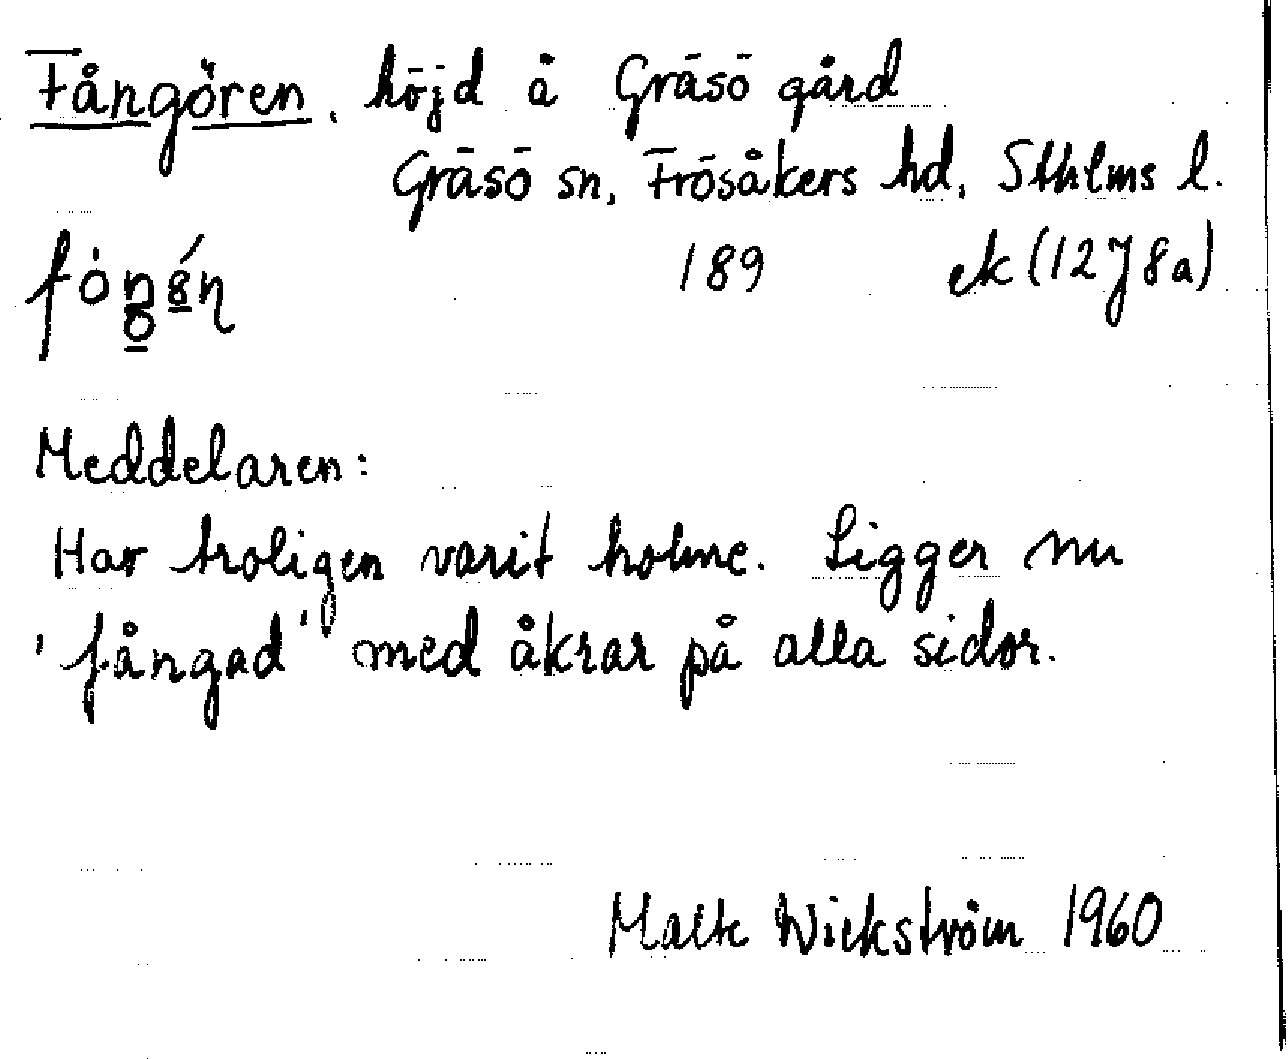 Fångören, höjd å Gräsö gård
Gräsö sn, Frösåkers hd, Sthlms l.
189 ek (12J8a)
Meddelaren:
Har troligen varit holme. Ligger nu
'fångad' med åkrar på alla sidor.
Malte Wickström 1960